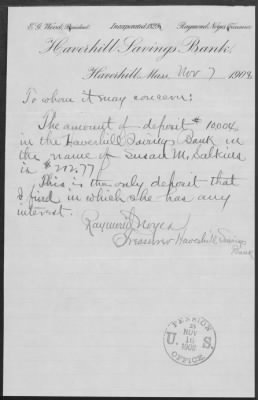 E. G. Wood, President. Incorporated 1829. Raymond Noyes, Treasurer.
Haverhill Savings Bank.
Haverhill, Mass. Nov 7 1908.
To whom it may concern:
The amount of deposit # 10,004
in the Haverhill Savings Bank in
the name of Susan M.
is $
This is the only deposit that
I find in which she has any
interest.
Raymond Noyes
Treasurer Haverhill Savings
Bank
PENSION
NOV
1908
U. S.
OFFICE